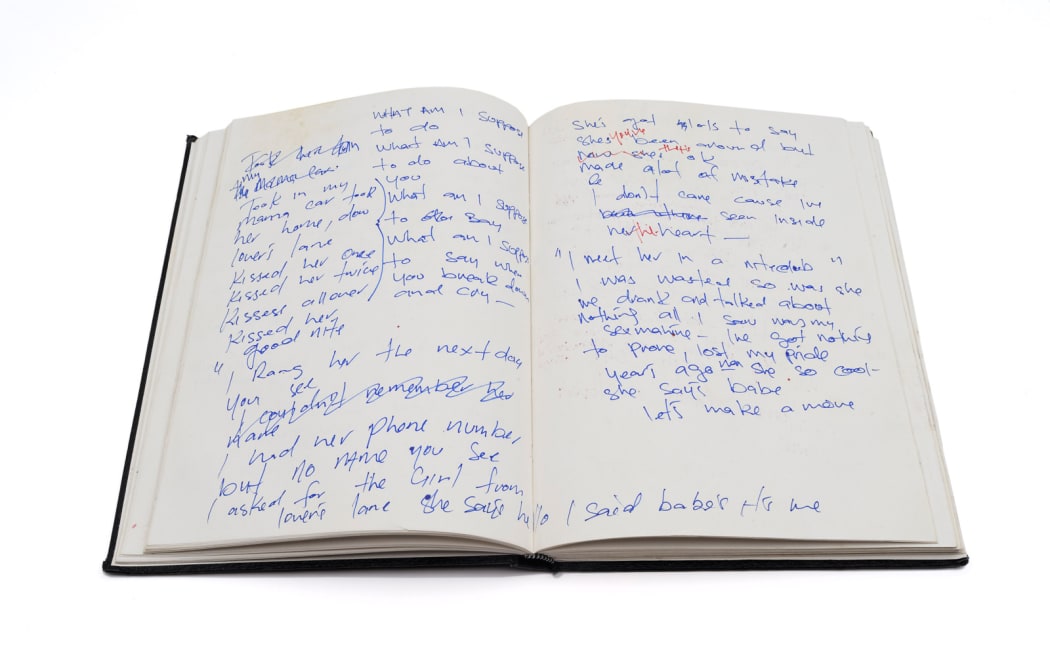 WHAT AM I SUPPOSE
to do
what am I suppose
to do about
you
what am I suppose
to say
what am I suppose
to say when
you break down
and cry —
Took her
the
Took in my
mama car took
her home, down
lover's lane
kissed her once
kissed her twice
kisses all over
kissed her
good nite
" I Rang her the next day
you see
I couldn't remember her
name
I had her phone number
but no name you see
I asked for the Girl from
lovers lane she says hello I said babe's it's me
She's got lots to say
she's you've been around but
now she's that's ok
made alot of mistake
I don't care cause Ive
seen inside
her the heart —
" I meet her in a niteclub "
I was wasted so was she
we drank and talked about
nothing all I saw was my
— Ive got nothing
to prove, lost my pride
years ago she so cool -
she says babe
let's make a move